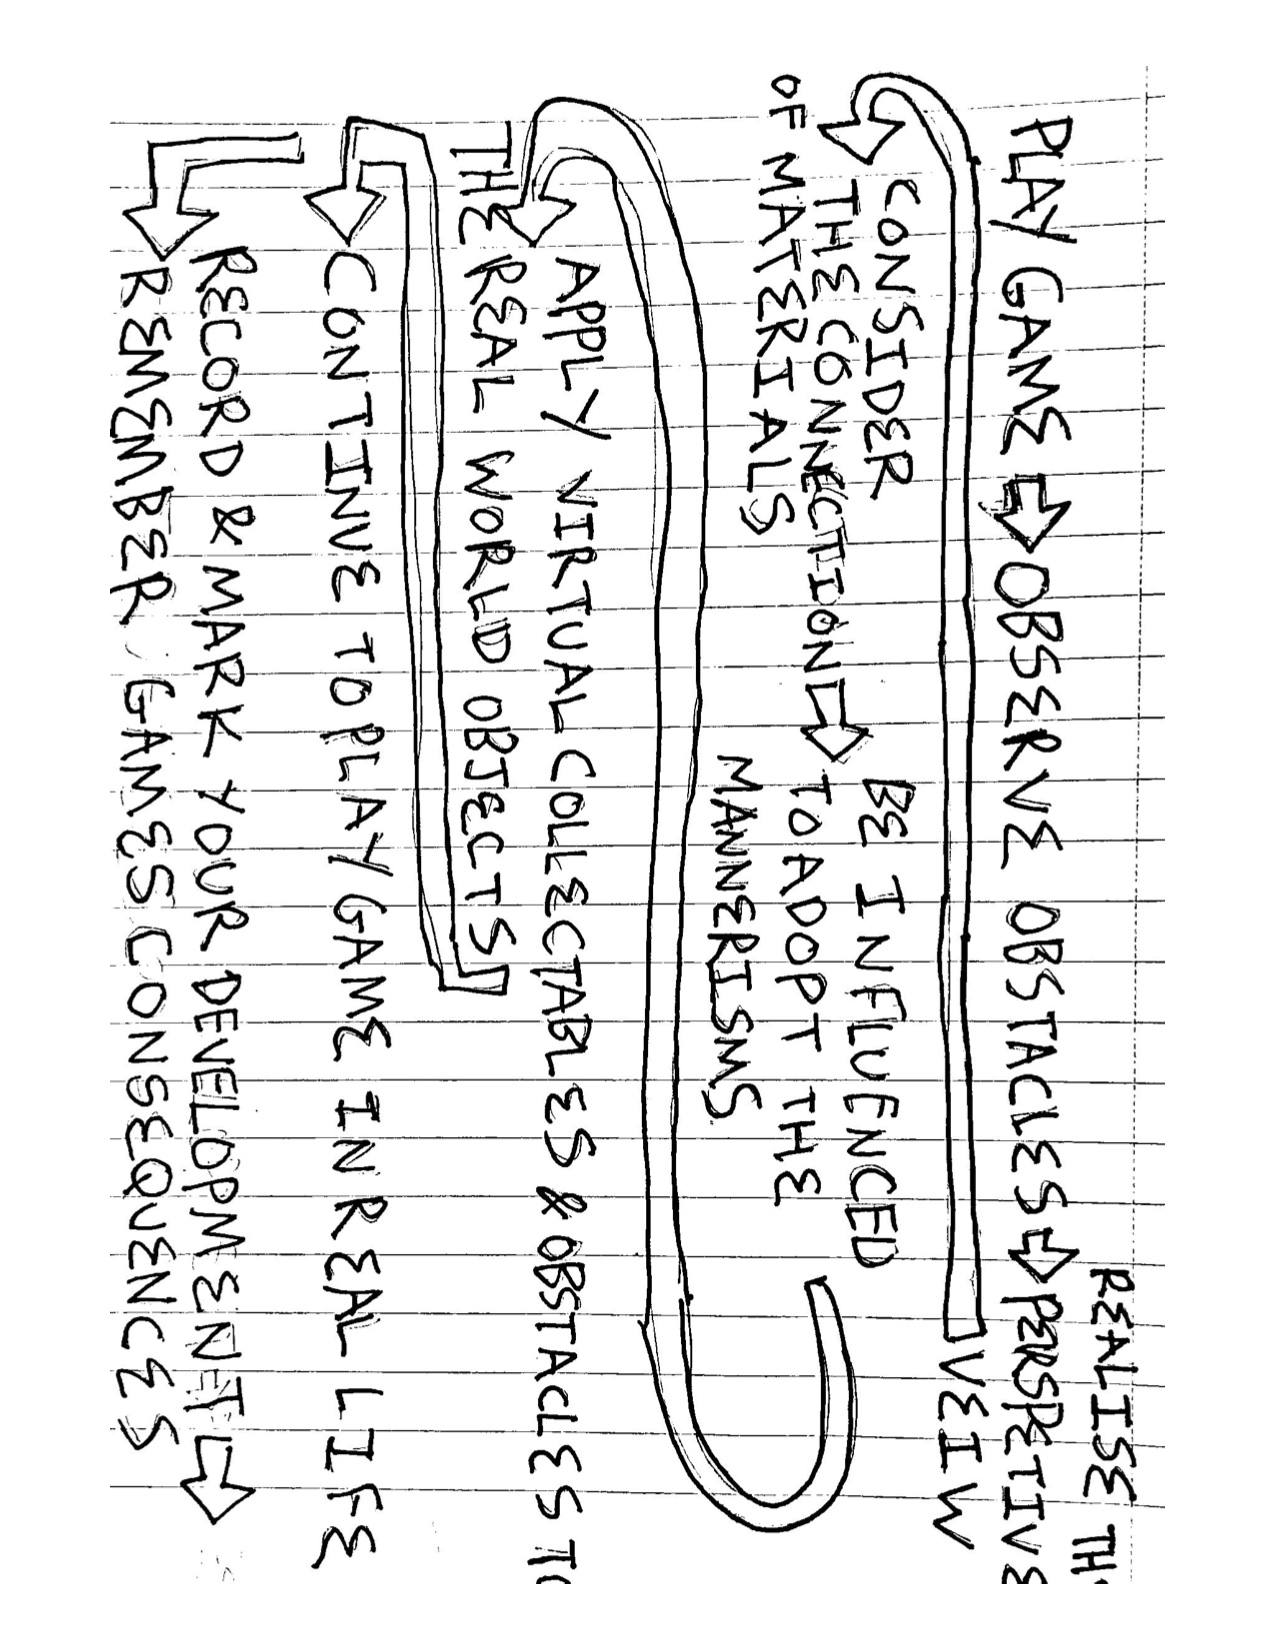 REALISE TH
PLAY GAME ⇨ OBSERVE OBSTACLES ⇨ PERSPETIVE
VEIW
CONSIDER
THE CONNECTION ⇨
OF MATERIALS
BE INFLUENCED
TO ADOPT THE
MANNERISMS
APPLY VIRTUAL COLLECTABLES & OBSTACLES TO
THE REAL WORLD OBJECTS
CONTINVE TO PLAY GAME IN REAL LIFE
RECORD & MARK YOUR DEVELOPMENT ⇨
REMEMBER GAMES CONSEQUENCES